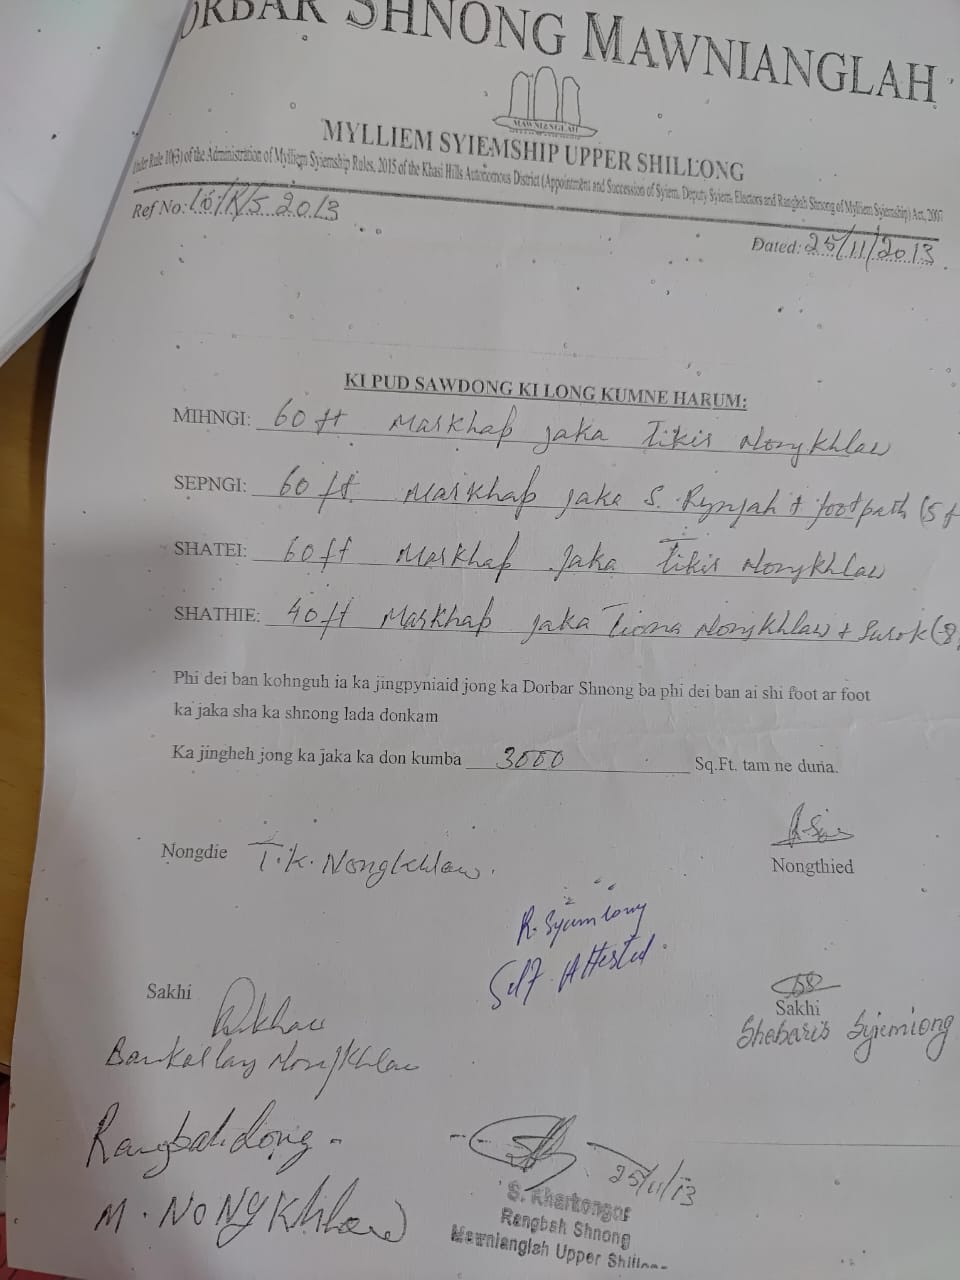 DORBAR SHNONG MAWNIANGLAH
MAWNIANGLAH
MYLLIEM SYIEMSHIP UPPER SHILLONG
Under Rule 10(3) of the Administration of Mylliem Syiemship Rules, 2015 of the Khasi Hills Autonomous District (Appointment and Succession of Syiem, Deputy Syiem, Electors and Rangbah Shnong of Mylliem Syiemship) Act, 2007
Ref No: 16/K/S 2013
Dated: 25/11/2013
KI PUD SAWDONG KI LONG KUMNE HARUM:
MIHNGI: 60 ft Markhap jaka Tikis Nongkhlaw
SEPNGI: 60 ft. Markhap jaka S. Rynjah + footpath (5 f
SHATEI: 60 ft Markhap Jaka Tikis Nongkhlaw
SHATHIE: 40 ft Markhap jaka Nongkhlaw + Surok (8
Phi dei ban kohnguh ia ka jingpyniaid jong ka Dorbar Shnong ba phi dei ban ai shi foot ar foot
ka jaka sha ka shnong lada donkam
Ka jingheh jong ka jaka ka don kumba 3000 Sq.Ft. tam ne duna.
Nongdie T.K. Nongkhlaw.
Nongthied
R. Syiemiong
Self Attested.
Sakhi
Sakhi
Shabaris Syiemiong
Nongkhlaw
Rangbah dong -
M. NONGKhlaw
25/11/13
S. Kharkongor
Rangbah Shnong
Mawnianglah Upper Shillong